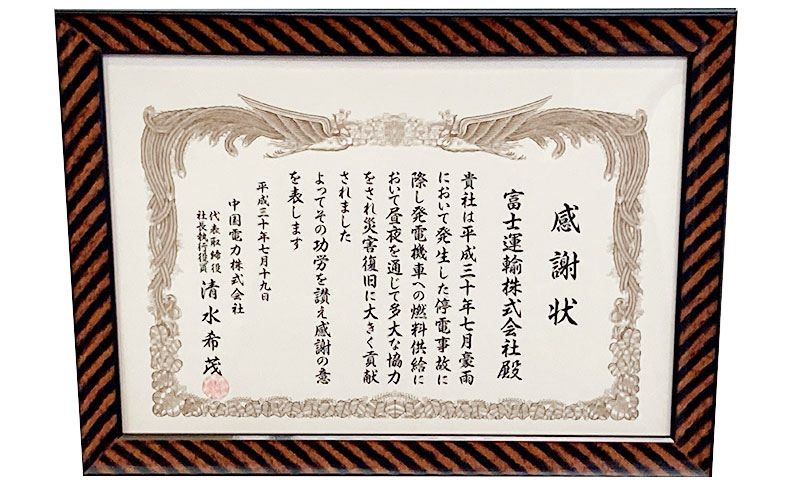 感謝状
富士運輸株式会社殿
貴社は平成三十年七月豪雨
において発生した停電事故に
際し発電機車への燃料供給に
おいて昼夜を通じて多大な協力
をされ災害復旧に大きく貢献
されました
よってその功労を讃え感謝の意
を表します
平成三十年七月十九日
中国電力株式会社
代表取締役
社長執行役員
清水希茂